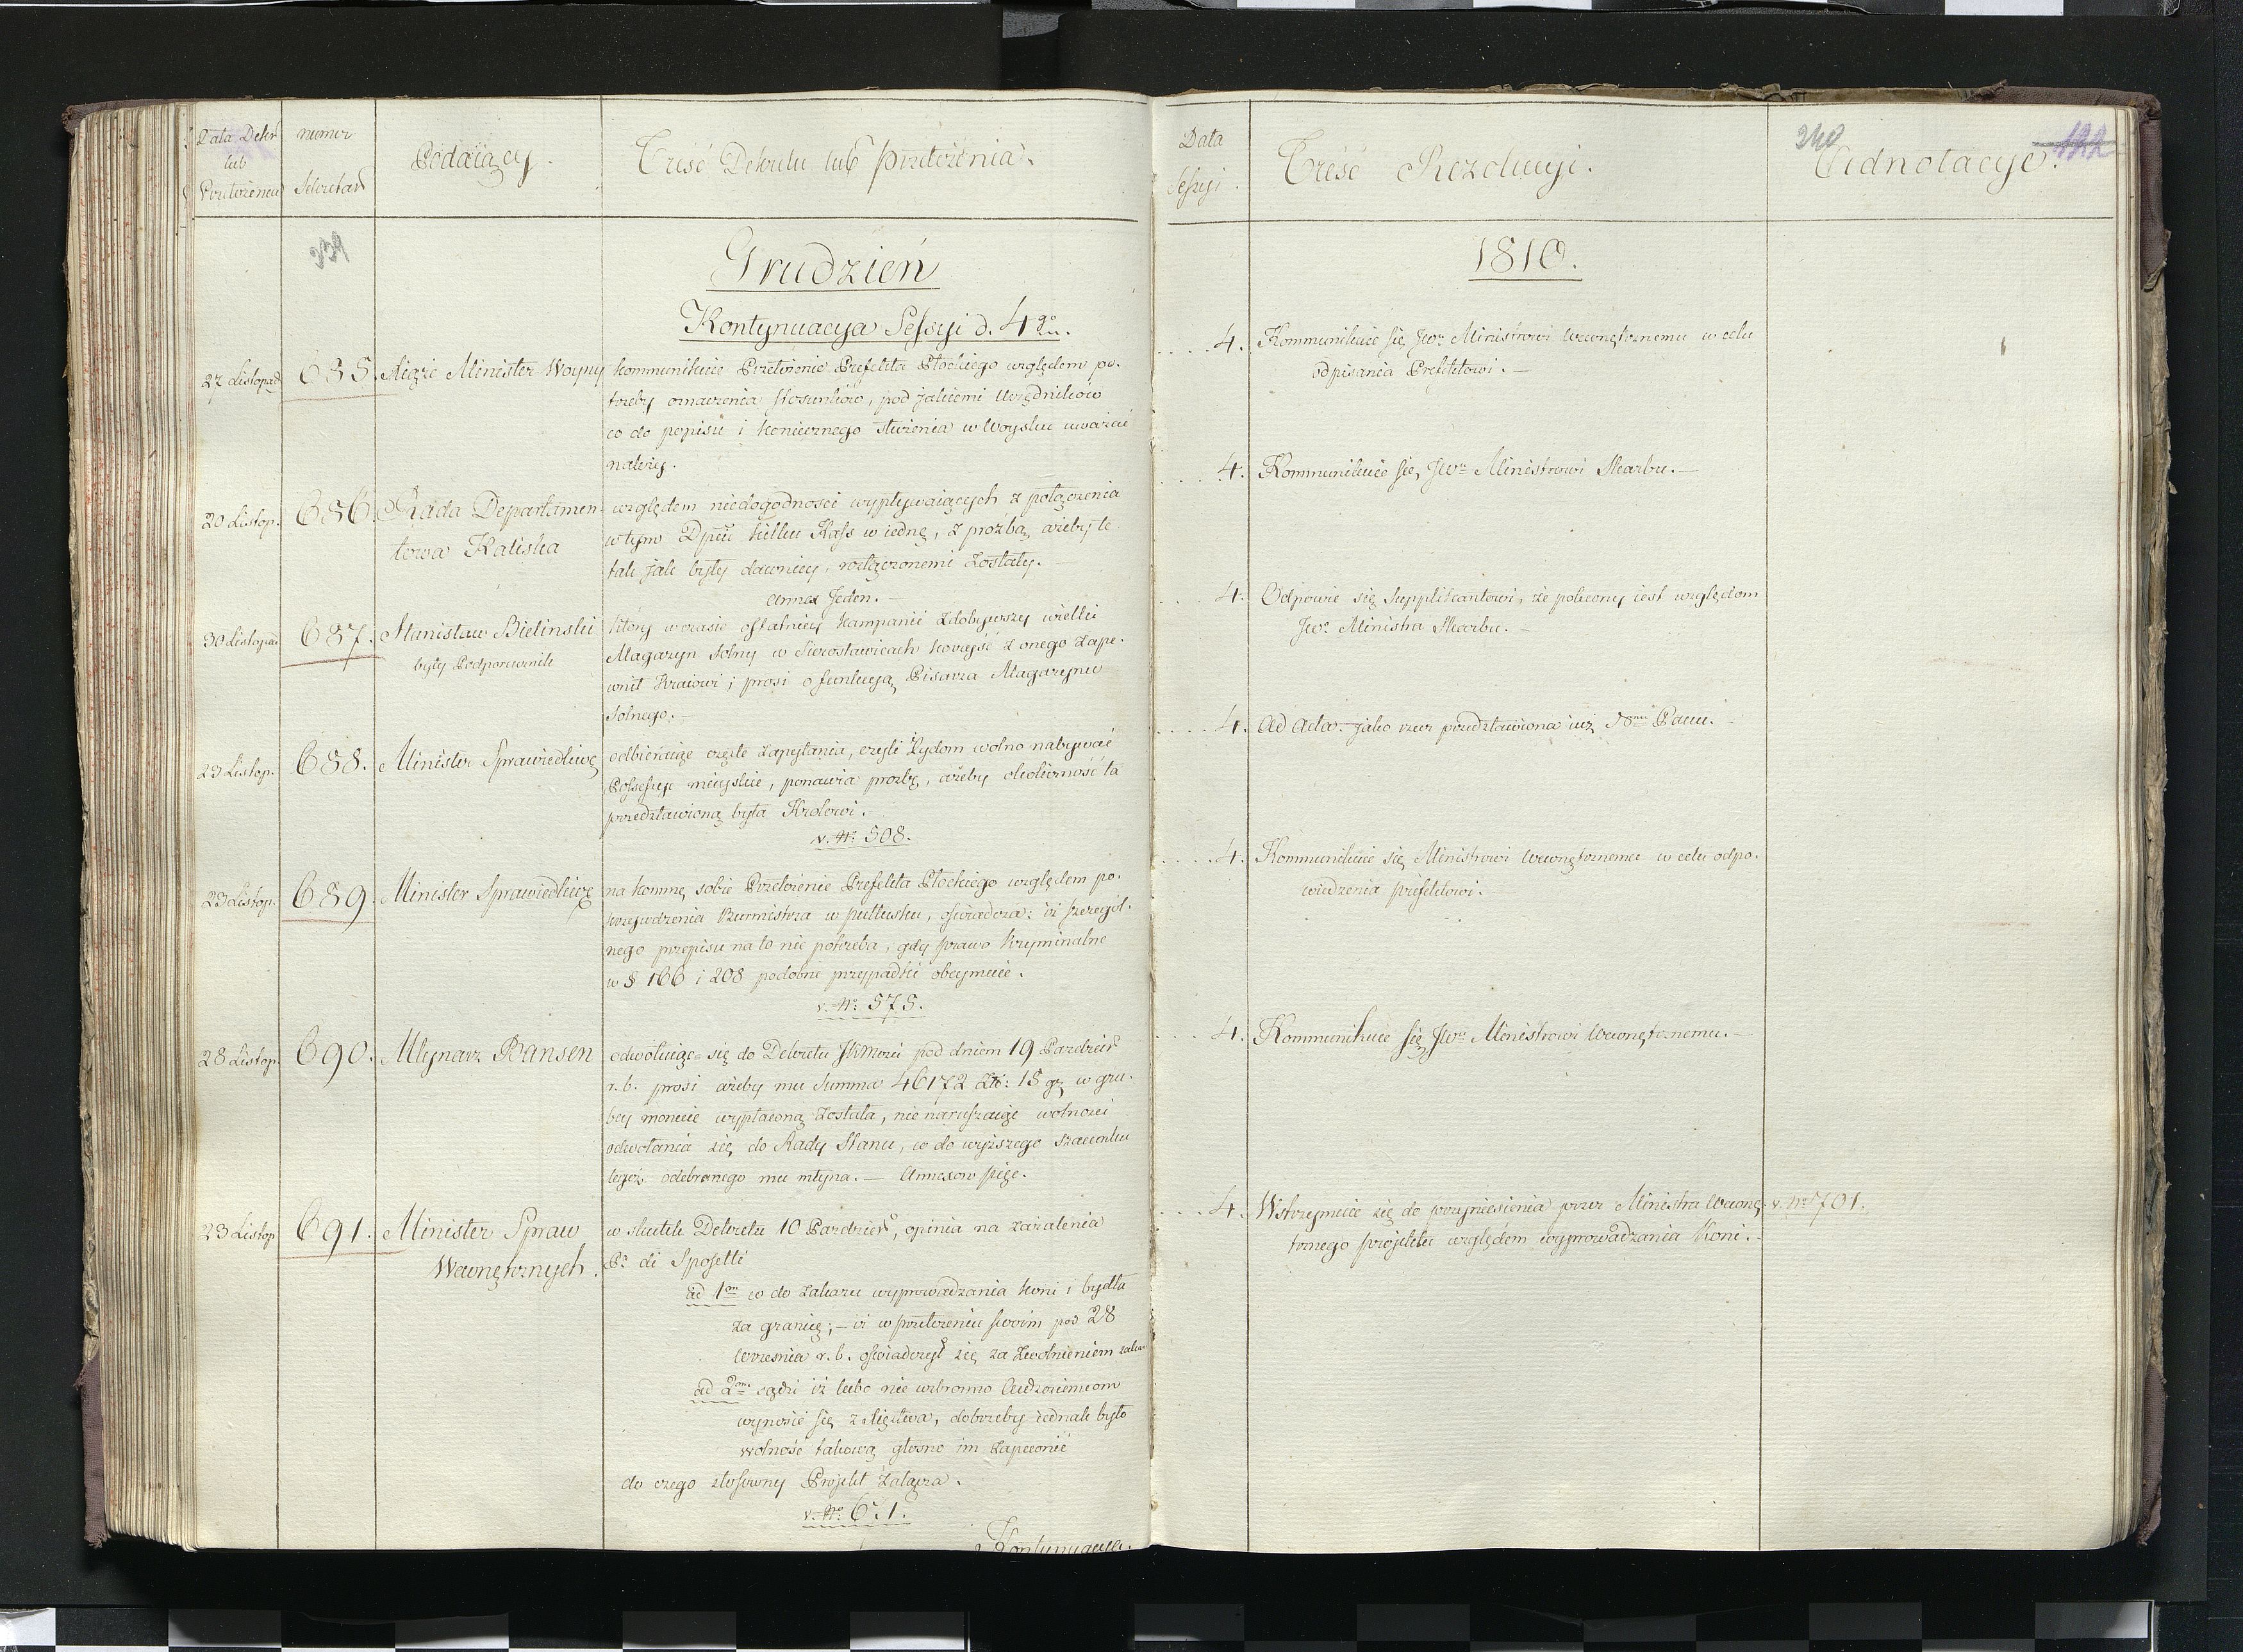 Data Dekr
lub
Przełożenia
numer
Sekretar
Podaiący.
Treść Dekretu lub przełożenia.
239
Grudzień
Kontynuacya Sessyi d. 4go
27 Listopad
685.
Xiąże Minister Woyny
kommunikuie Przełożenie Prefekta Płockiego względem po-
trzeby oznaczenia stosunków, pod jakiemi Urzędników
co do popisu i koniecznego służenia w Woysku uważać
należy.
20 Listop.
686.
Rada Departamen-
towa Kaliska
względem niedogodności wypływaiących z połączenia
w tym Dpcie kilku Kass w iednę, z prozbą, ażeby te
tak jak były dawniey, rozłączonemi zostały.
Annex Jeden.
30 Listopad
687.
Stanisław Bieliński
były Podporucznik
który w czasie ostatniey kampanii zdobywszy wielki
Magazyn solny w Sierosławicach korzyść z onego zape-
wnił Kraiowi; prosi o funkcyą Pisarza Magazynu
Solnego.
23 Listop.
688.
Minister Sprawiedliwę
odbieraiąc częste zapytania, czyli Żydom wolno nabywać
Possessye mieyskie, ponawia prozbę, ażeby okoliczność ta
przedstawioną była Krolowi.
v. Nr: 508.
23 Listop.
689.
Minister Sprawiedliwę
na kommę sobie Przełożenie Prefekta Płockiego względem po-
krzywdzenia Burmistrza w Pułtusku, oświadcza: iż szczegól-
nego przepisu na to nie potrzeba, gdy prawo kryminalne
w § 166 i 208 podobne przypadki obeymuie.
v. Nr: 575.
28 Listop.
690.
Młynarz Bansen
odwołuiąc się do Dekretu JKMości pod dniem 19 Pazdzier
r.b. prosi ażeby mu Summa 46172 Złt: 15 gr w gru-
bey monecie wypłaconą została, nie naruszaiąc wolności
odwołania się do Rady Stanu, co do wyższego szacunku
tegoż odebranego mu młyna. — Annexow pięć.
23 Listop
691.
Minister Spraw
Wewnętrznych.
w skutek Dekretu 10 Pazdzier, opinia na zażalenia
Pa di Sposetti
ad 1m co do zakazu wyprowadzania koni i bydła
za granicę; — iż w przełożeniu swoim pod 28
Września r.b. oświadczył się za zwolnieniem zakazu
ad 2m sądzi iż lubo nie wzbronno Cudzoziemcom
wynosić się z Xięstwa, dobrzeby iednak było
wolność takową głosno im zapewnić
do czego stosowny Projekt załącza.
v. Nr: 6.1.
Kontynuacya.
Data
Sessyi.
Treść Rezolucyi.
240
Adnotacye.
122
1810.
4. Kommunikuie się JWu Ministrowi Wewnętrznemu w celu
odpisania Prefektowi. —
4. Kommunikuie się JWu Ministrowi Skarbu. —
4. Odpowie się Supplikantowi, że polecony iest względom
JWo Ministra Skarbu. —
4. Ad Acta. jako rzecz przedstawiona iuż Nmu Panu.
4. Kommunikuie się Ministrowi Wewnętrznemu w celu odpo-
wiedzenia prefektowi.
4. Kommunikuie się JWu Ministrowi Wewnętrznemu. —
4. Wstrzymuie się do przyniesienia przez Ministra Wewnę-
trznego projektu względem wyprowadzania Koni. —
v. Nr 701.